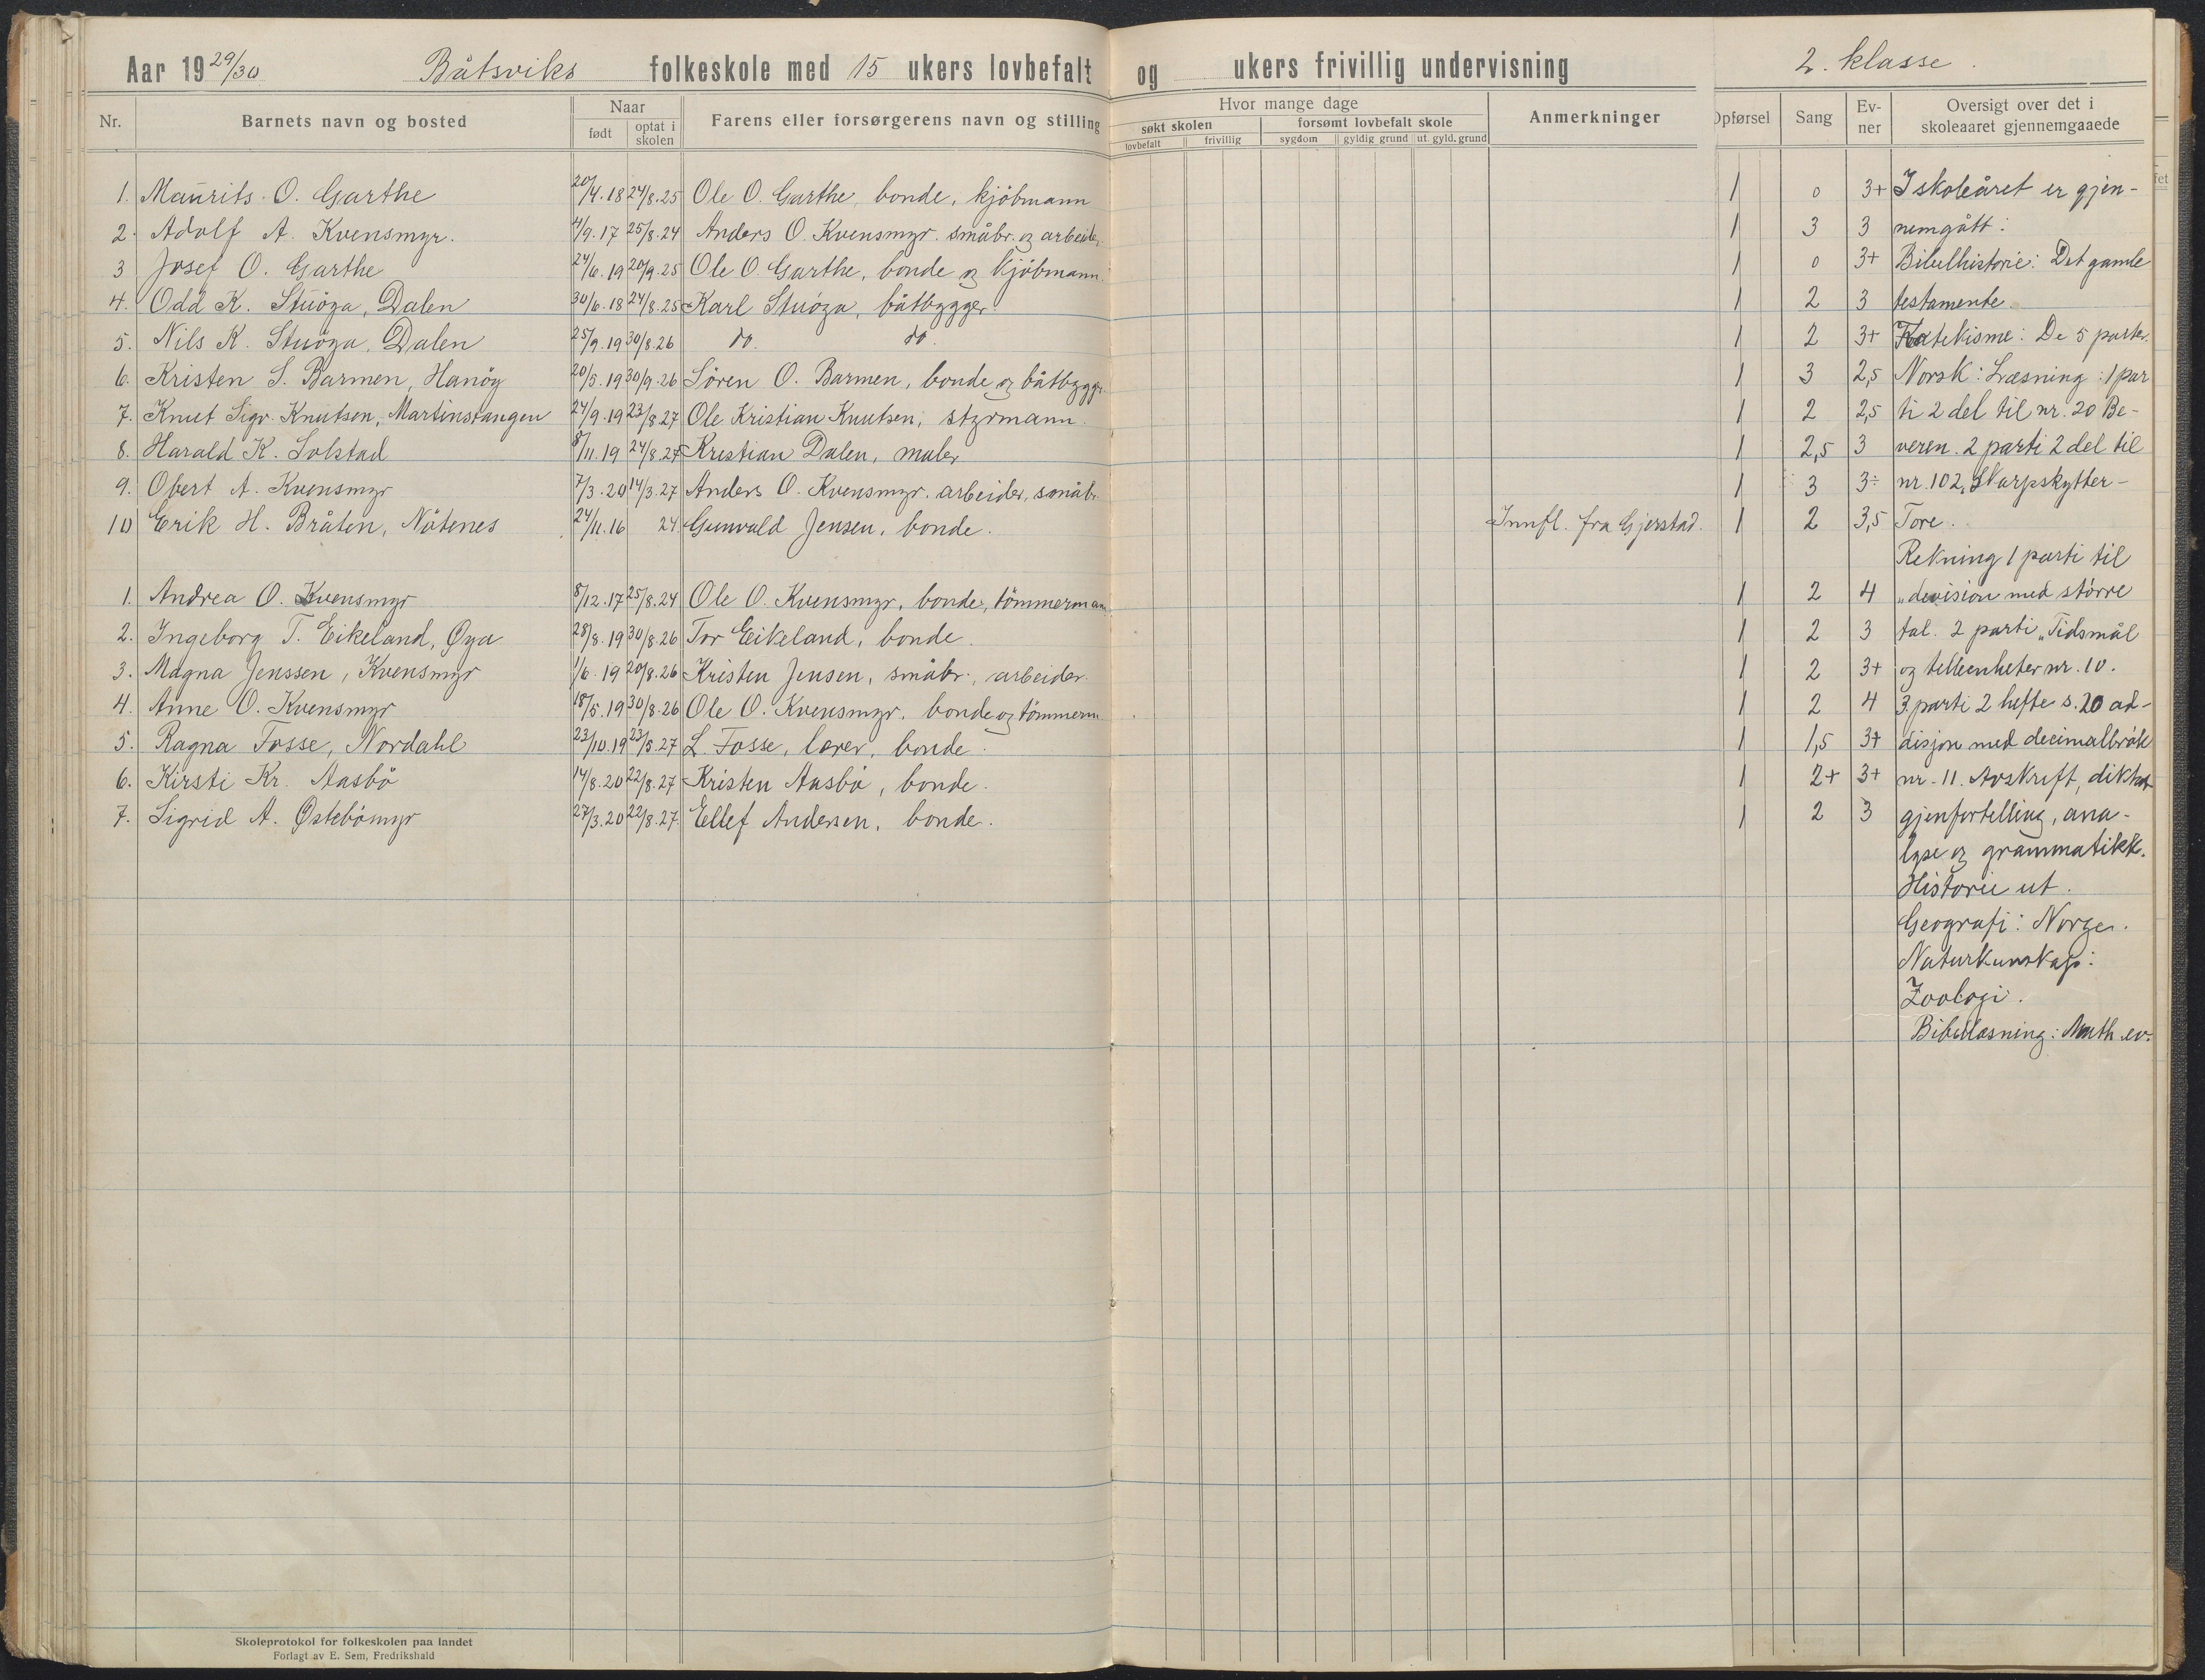 Aar 19 29/30 Båtsviks folkeskole med 15 ukers lovbefalt og ukers frivillig undervisning 2. klasse.
Nr. Barnets navn og bosted Naar født optat i skolen Farens eller forsørgerens navn og stilling Hvor mange dage søkt skolen lovbefalt frivillig forsømt lovbefalt skole sygdom gyldig grund ut. gyld. grund Anmerkninger Opførsel Sang Ev-ner Oversigt over det i skoleaaret gjennemgaaede
1. Maurits O. Garthe 20/4.18 24/8.25 Ole O. Garthe, bonde, kjöbmann 1 0 3+ I skoleåret er gjen-
2. Adolf A. Kvensmyr. 4/9.17 25/8.24 Anders O. Kvensmyr. småbr. og arbeider 1 3 3 nemgått:
3 Josef O. Garthe 24/6.19 20/9.25 Ole O. Garthe, bonde og kjöbmann 1 0 3+ Bibelhistorie: Det gamle
4. Odd K. Stuöya, Dalen 30/6.18 24/8.25 Karl Stuöya, båtbygger. 1 2 3 testamente
5. Nils K. Stuöya, Dalen 25/9.19 30/8.26 do. do. 1 2 3+ Katekisme: De 5 parter.
6. Kristen S. Barmen, Hanöy 20/5.19 30/9.26 Sören O. Barmen, bonde og båtbyggr. 1 3 2,5 Norsk: Læsning: 1 par
7. Knut Sigv. Knutsen, Martinstangen 24/9.19 23/8.27 Ole Kristian Knutsen, styrmann. 1 2 2,5 ti 2 del til nr. 20 Be-
8. Harald K. Solstad 8/11.19 24/8.27 Kristian Dalen, maler 1 2,5 3 veren. 2 parti 2 del til
9. Obert A. Kvensmyr 7/3.20 14/3.27 Anders O. Kvensmyr. arbeider, småbr. 1 3 3÷ nr. 102, Skarpskytter-
10 Erik H. Bråten, Nötenes 24/11.16 24. Gunvald Jensen, bonde. Innfl. fra Gjerstad. 1 2 3,5 Tore.
Rekning 1 parti til
1. Andrea O. Kvensmyr 8/12.17 25/8.24 Ole O. Kvensmyr, bonde, tömmermann 1 2 4 „devision med större
2. Ingeborg T. Eikeland, Øya 28/8.19 30/8.26 Tor Eikeland, bonde. 1 2 3 tal. 2 parti „Tidsmål
3. Magna Jenssen, Kvensmyr 1/6.19 20/8.26 Kristen Jensen, småbr., arbeider. 1 2 3+ og telleenheter nr. 10.
4. Anne O. Kvensmyr 18/5.19 30/8.26 Ole O. Kvensmyr. bonde og tömmerm 1 2 4 3 parti 2 hefte s. 20 ad-
5. Ragna Fosse, Nordahl 23/10.19 23/5.27 L. Fosse, lærer, bonde. 1 1,5 3+ disjon med decimalbrök
6. Kirsti Kr. Aasbö 14/8.20 22/8.27 Kristen Aasbö, bonde. 1 2+ 3+ nr. 11. Avskrift, diktat
7. Sigrid A. Østebömyr 27/3.20 22/8.27. Ellef Andersen, bonde. 1 2 3 gjenfortelling, ana-
lyse og grammatikk.
Historie ut.
Geografi: Norge.
Naturkunskap:
Zoologi.
Bibellæsning: Math. ev.
Skoleprotokol for folkeskolen paa landet
Forlagt av E. Sem, Fredrikshald